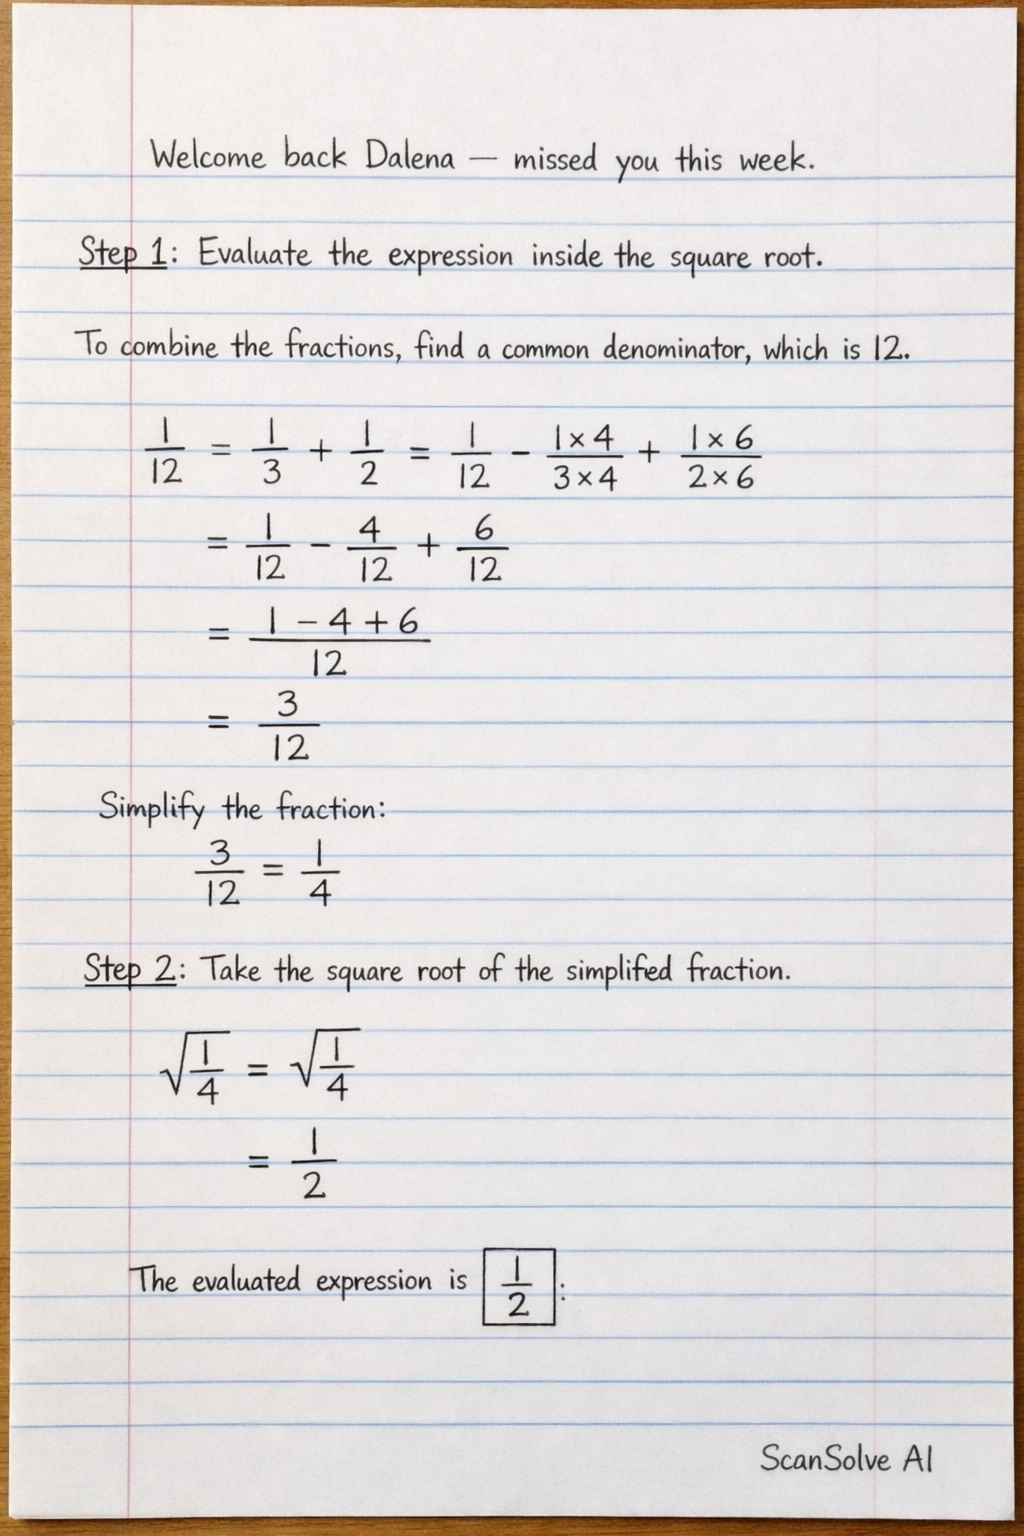 Welcome back Dalena — missed you this week.
Step 1: Evaluate the expression inside the square root.
To combine the fractions, find a common denominator, which is 12.
1/12 = 1/3 + 1/2 = 1/12 - (1×4)/(3×4) + (1×6)/(2×6)
= 1/12 - 4/12 + 6/12
= (1 - 4 + 6)/12
= 3/12
Simplify the fraction:
3/12 = 1/4
Step 2: Take the square root of the simplifed fraction.
√(1/4) = √(1/4)
= 1/2
The evaluated expression is 1/2:
ScanSolve AI